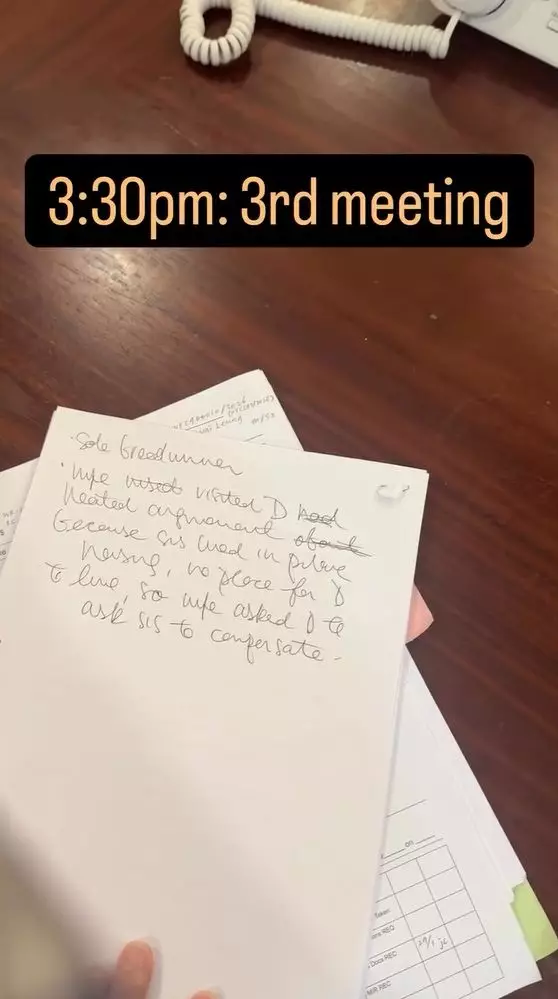 3:30pm: 3rd meeting
· Sole breadwinner
· wife visited D had
heated argument about
because sis lived in private
housing, no place for D
to live, so wife asked D to
ask sis to compensate.
on
Taken
REQ
Docs REC
REC